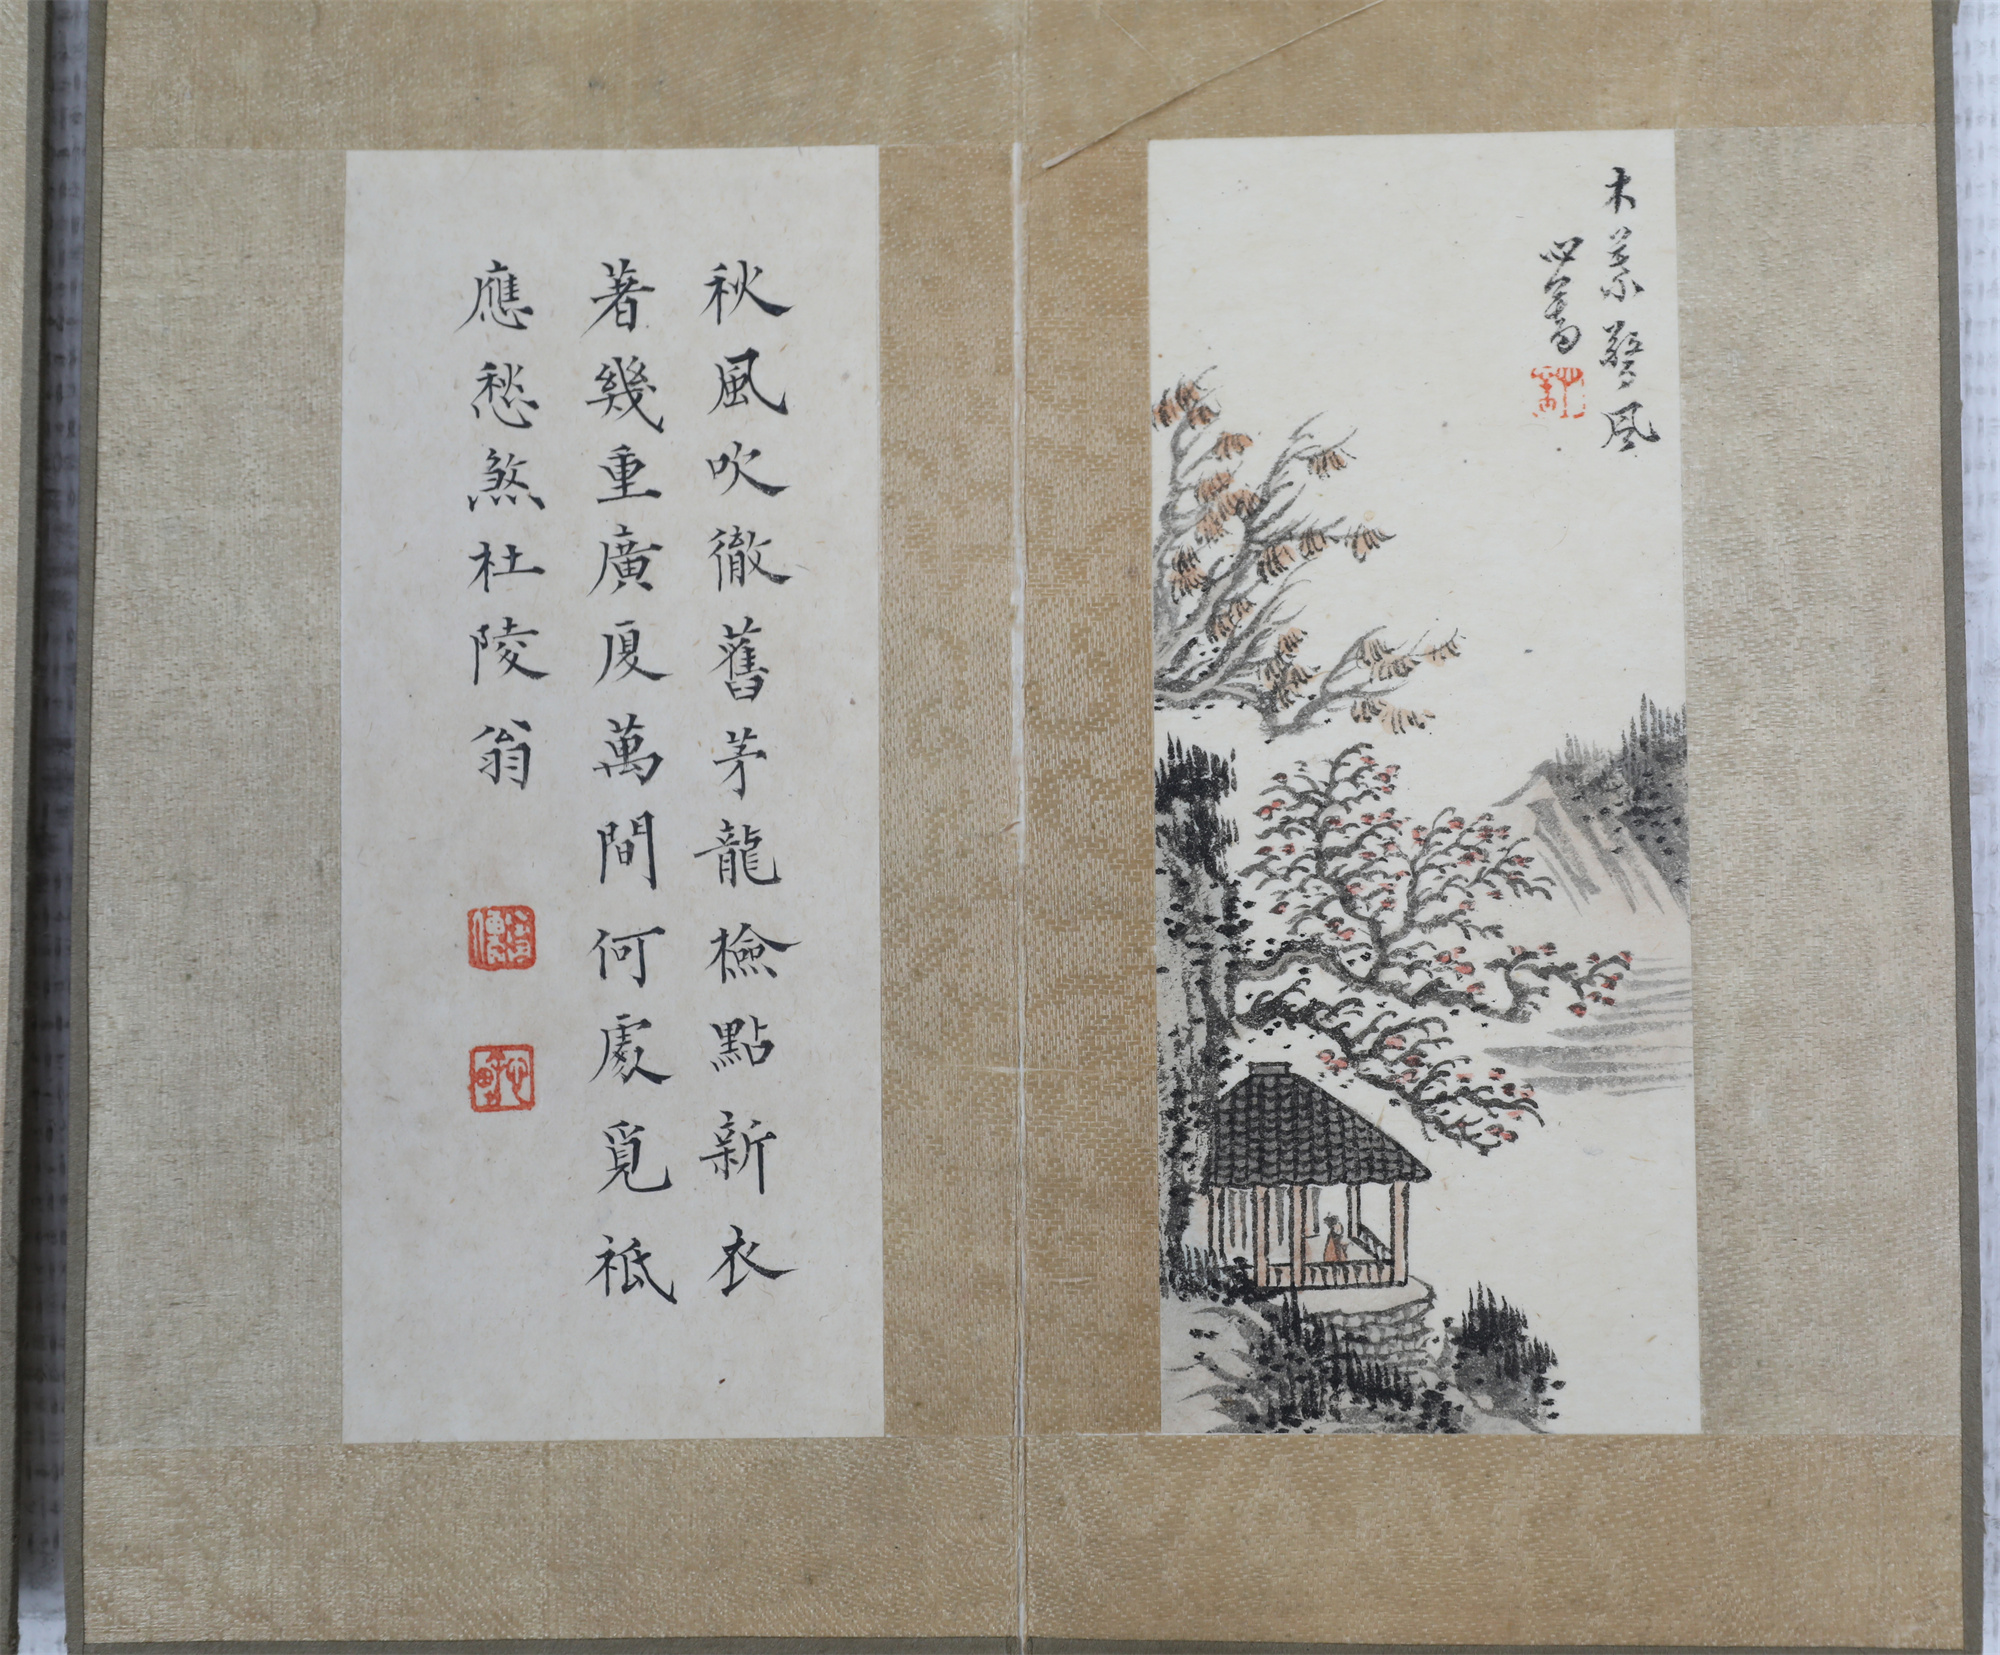 木葉驚風
心畬
秋風吹徹舊茅龍檢點新衣
著幾重廣厦萬間何處覓祇
應愁煞杜陵翁